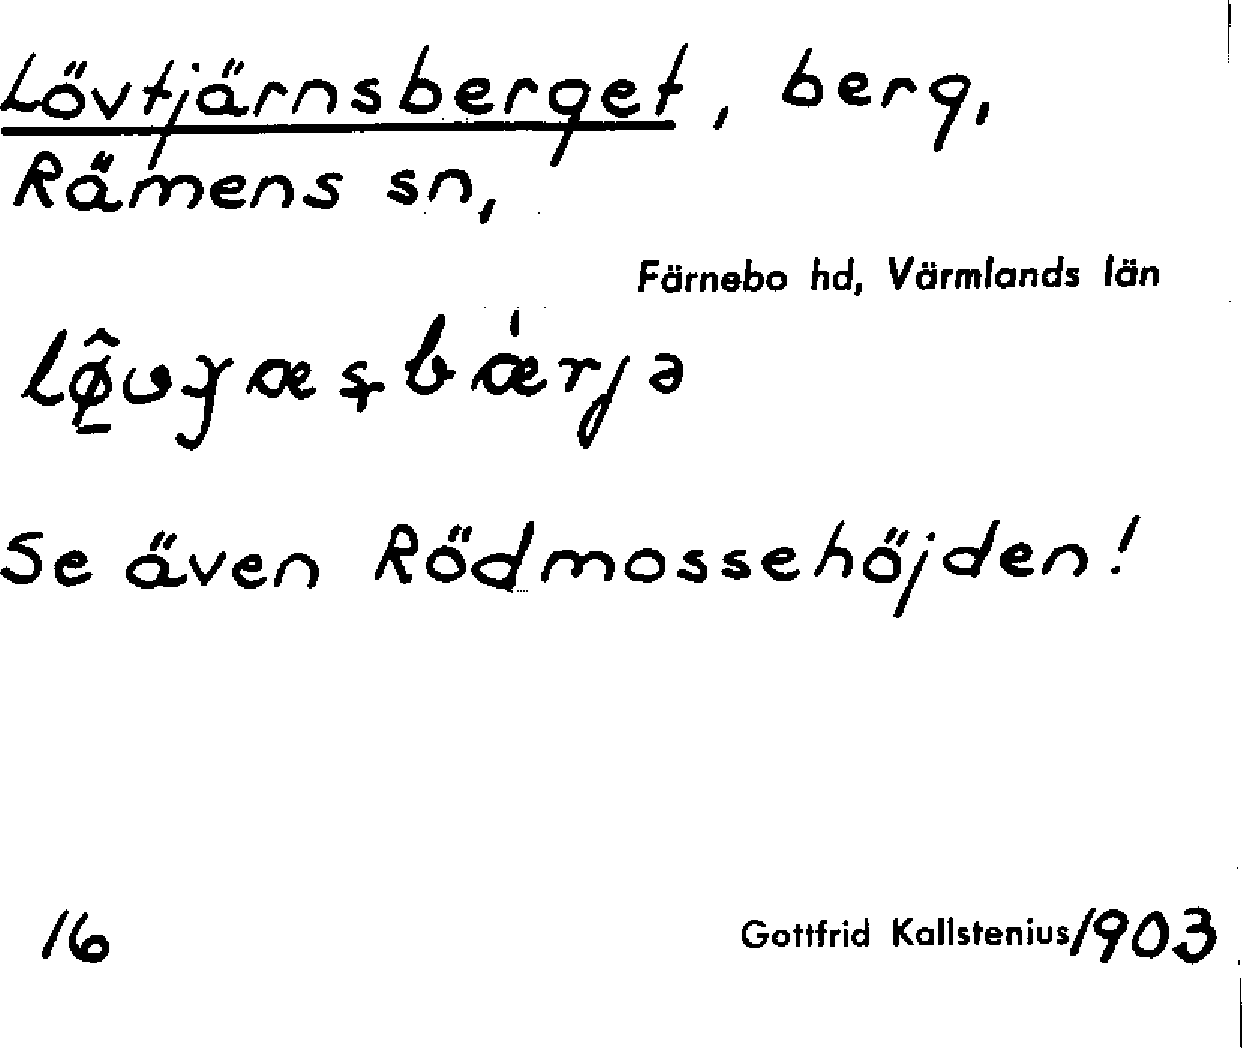 Lövtjärnsberget, berg,
Rämens sn,
Färnebo hd, Värmlands län
Se även Rödmossehöjden!
16 Gottfrid Kallstenius 1903